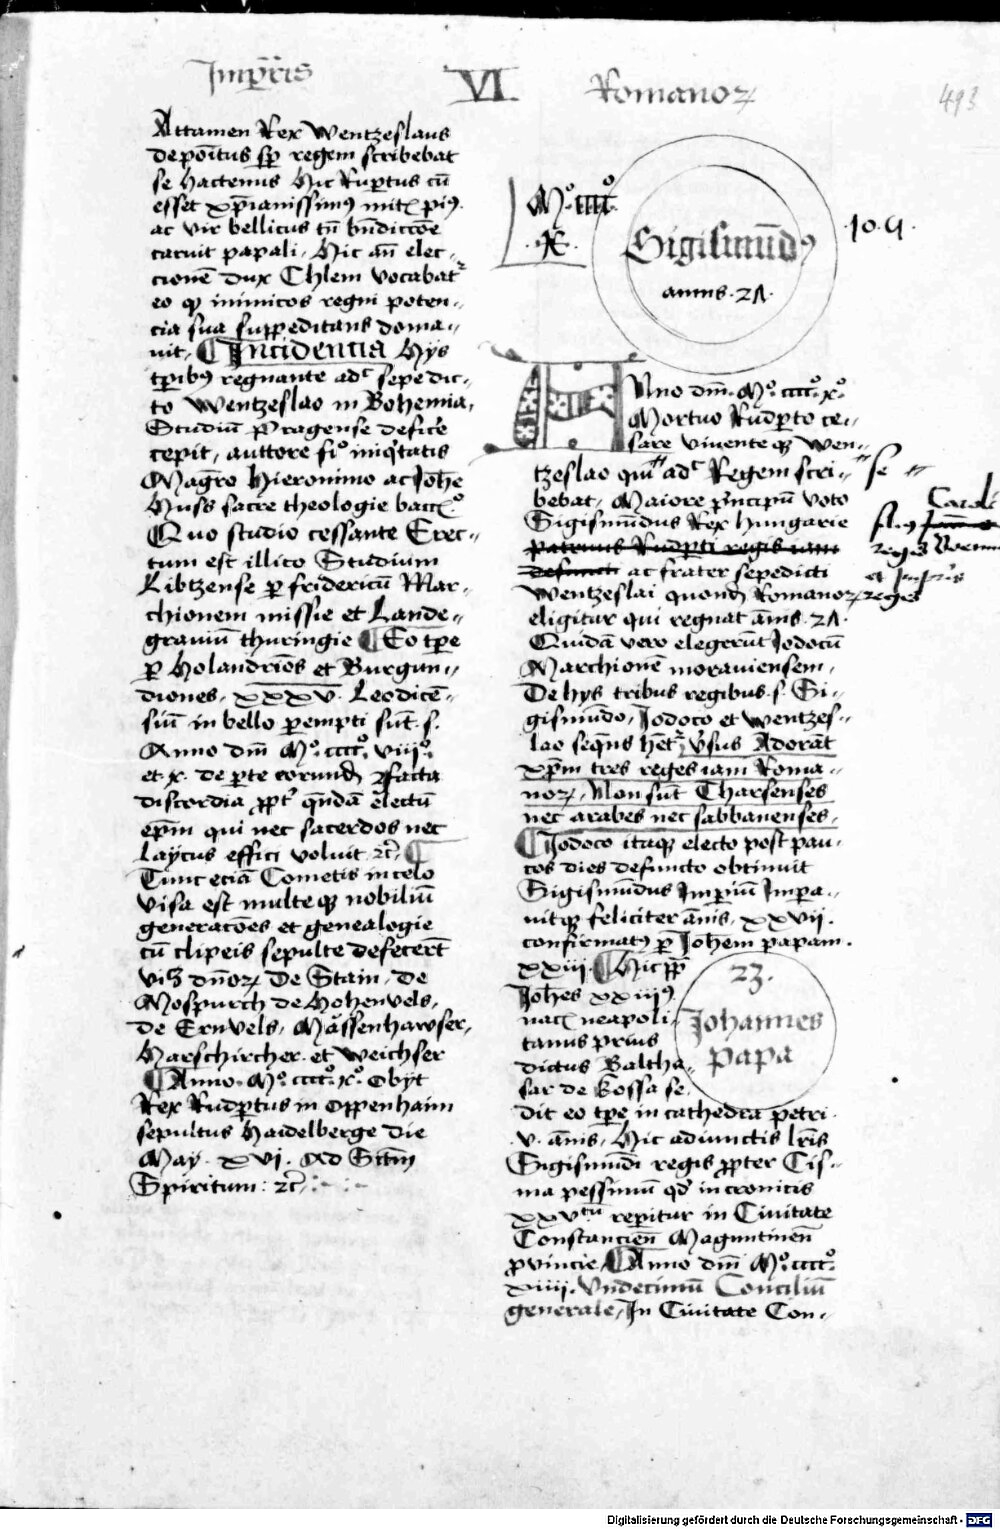 Imp̄ris VI Romanoꝝ 493
Attamen Rex Wentzeslaus
depoītus sp̄ regem scribebat
se hactenus Hic Rup̄tus cū
esset xp̄ianissimꝰ mitꝭ piꝰ.
ac vir bellicus tn̄ bn̄diccōe
caruit papali. Hic an̄ elec-
cionē dux Chlem vocabatᷣ
eo qꝫ inimicos regni poten-
cia sua supp̄editans doma-
uit. Incidencia Hijs
tp̄ibꝰ regnante adᶜ sepedic-
to Wentzeslao in Bohemia,
Studiū Pragense defic̄e
cepit, auttore siᵒ iniq̄tatis
Magr̄o Hieronimo ac Joh̄e
Huss sacre theologie baccꝭᵒ
Quo studio cessante Erec-
tum est illico Studium
Libtzense ꝑ fridericū Mar-
chionem missie et Lande-
grauiū thuringie Eo tp̄e
ꝑ Holandriōs et Burgun-
diones. xxxv. Leodicē-
siū in bello ꝑempti sūt .s.
Anno dm̄ Mᵒ. ccccᵒ. viijᵒ.
et x. de ꝑte eorund̄ ꝛfacta
discordia ꝓptᷣ qn̄dā electū
ep̄m qui nec sacerdos nec
laycus effici voluit ꝛc̄
Tunc eciā Cometis in celo
visa est multe qꝫ nobiliū
generacōes et genealogie
cū clipeis sepulte defecer̄t
vilꝫ dn̄oꝝ De Stain. de
Mospurch de Hohenvels.
de Ernvels. Mässenhawser,
Harschircher. et Weichser
Anno. Mᵒ. ccccᵒ. xᵒ. obijt
Rex Rud̄ptus in oppenhaim
sepultus Haidelberge die
May. xvi. Ad Sct̄m
Spiritum : ꝛc̄
Mᵒ. ccccᵒ.
.x.
Sigismūdꝰ
annis. 27.
109.
Anno dm̄. Mᵒ. ccccᵒ. xᵒ.
Mortuo Rud̄pto ce-
sare viuente qꝫ Wen-
tzeslao qui adᶜ Regem scri- se
bebat. Maiore p̄ncipū voto
Sigismūdus Rex Hungarie
patruus Rud̄pti regis iam
defuncti ac frater sepedicti
Wentzeslai quond̄ Romanoꝝ
eligitur qui regnat ānis. 27.
Quidā vero elegerūt Jodocū
Marchionē morauiensem.
De hijs tribus regibus .s. Si-
gismūdo, Jodoco et Wentzes-
lao seq̄ns hetᷣ v̄sus Adorāt
xp̄m tres reges iam Roma-
noꝝ. Non sūt Tharsenses
nec arabes nec sabbanenses.
Jodoco itaqꝫ electo post pau-
cos dies defuncto obtinuit
Sigismūdus Imp̄iū Impa-
uitqꝫ feliciter ānis. xxvij.
confirmatꝰ ꝑ Johēm papam.
xxiij. Hic pp̄
Joh̄es xxiijꝰ.
nacꝭ neapoli-
tanus prius
dictus Baltha-
sar de Kossa se
dit eo tp̄e in cathedra petri.
.v. ānis. Hic adiunctis lr̄is
Sigismūdi regis ꝓpter Cis-
ma pessimū qd̄ in cronicis
xxvᵗᵘ̄ rep̄itur in Ciuitate
Constancien̄ Maguntinen̄
ꝓvincie. Anno dm̄ Mᵒ. ccccᵒ.
xiiij. Vndecimū Conciliū
generale. In Ciuitate Con-
23.
Johannes
papa
Caroli
et Imp̄ris
reges
Digitalisierung gefördert durch die Deutsche Forschungsgemeinschaft - DFG